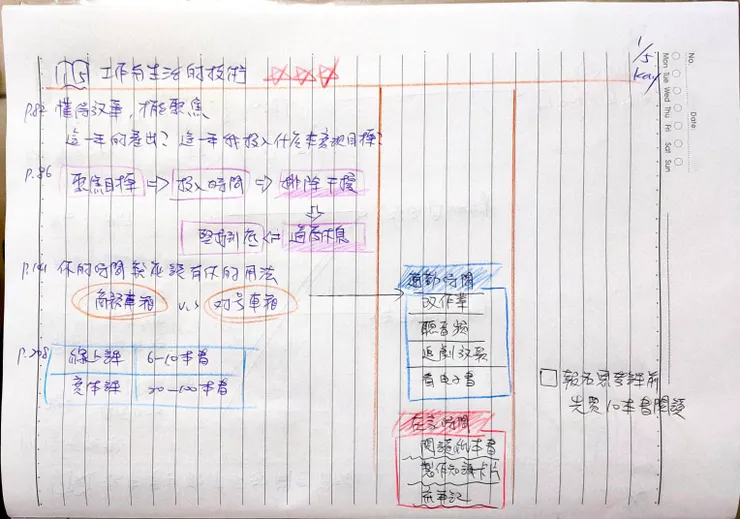 1/5
Kay
No.
Date
Mon Tue Wed Thu Fri Sat Sun
1/5 工作與生活的技術
P.82 懂得收穫,才能聚焦
這一年的產出?這一年我投入什麼來實現目標?
P.86
聚焦目標 => 投入時間 => 排除干擾
堅持到底 <= 適當休息
P.141 你的時間就應該有你的用法
商務車廂 v.s 對号車廂
P.208
線上課 6-10本書
實体課 20-100本書
通勤時間
改作業
聽音頻
追劇放鬆
看电子書
在家時間
閱讀紙本書
製作知識卡片
寫筆記
報名恩斯課前
先買10本書閱讀